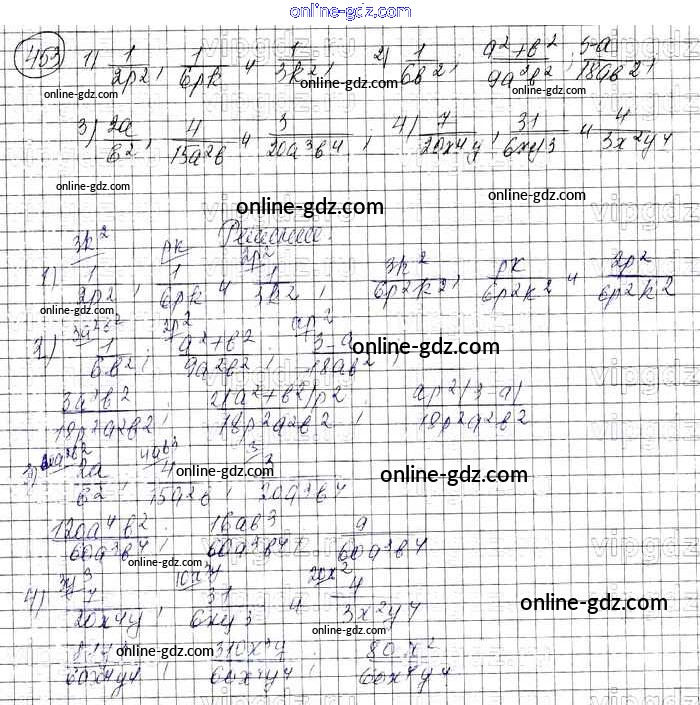 online-gdz.com
453 1) 1/2p², 1/6pk и 1/3k²; 2) 1/6b², a²+b²/9a²b², 3-a/18ab²;
online-gdz.com online-gdz.com online-gdz.com
3) 2a/b², 4/15a²b и 3/20a³b⁴; 4) 7/20x⁴y, 31/6xy³ и 4/3x²y⁴
online-gdz.com online-gdz.com
online-gdz.com
Решение.
3k² pk 2p²
1) 1/2p², 1/6pk и 1/3k²; 3k²/6p²k², pk/6p²k² и 2p²/6p²k²
online-gdz.com
3a²b² 2p² ap²
2) 1/6b², a²+b²/9a²b², 3-a/18ab²
online-gdz.com online-gdz.com
3a²b²/18p²a²b², 2(a²+b²)p²/18p²a²b², ap²(3-a)/18p²a²b²
online-gdz.com
3) 2a/b², 4/15a²b, 3/20a³b⁴
online-gdz.com online-gdz.com
120a⁴b²/60a³b⁴, 16ab³/60a³b⁴, 9/60a³b⁴
online-gdz.com
3y³ 10x³y 20x²
4) 7/20x⁴y, 31/6xy³ и 4/3x²y⁴
online-gdz.com online-gdz.com
310x³y/60x⁴y⁴, 80x²/60x⁴y⁴
online-gdz.com online-gdz.com